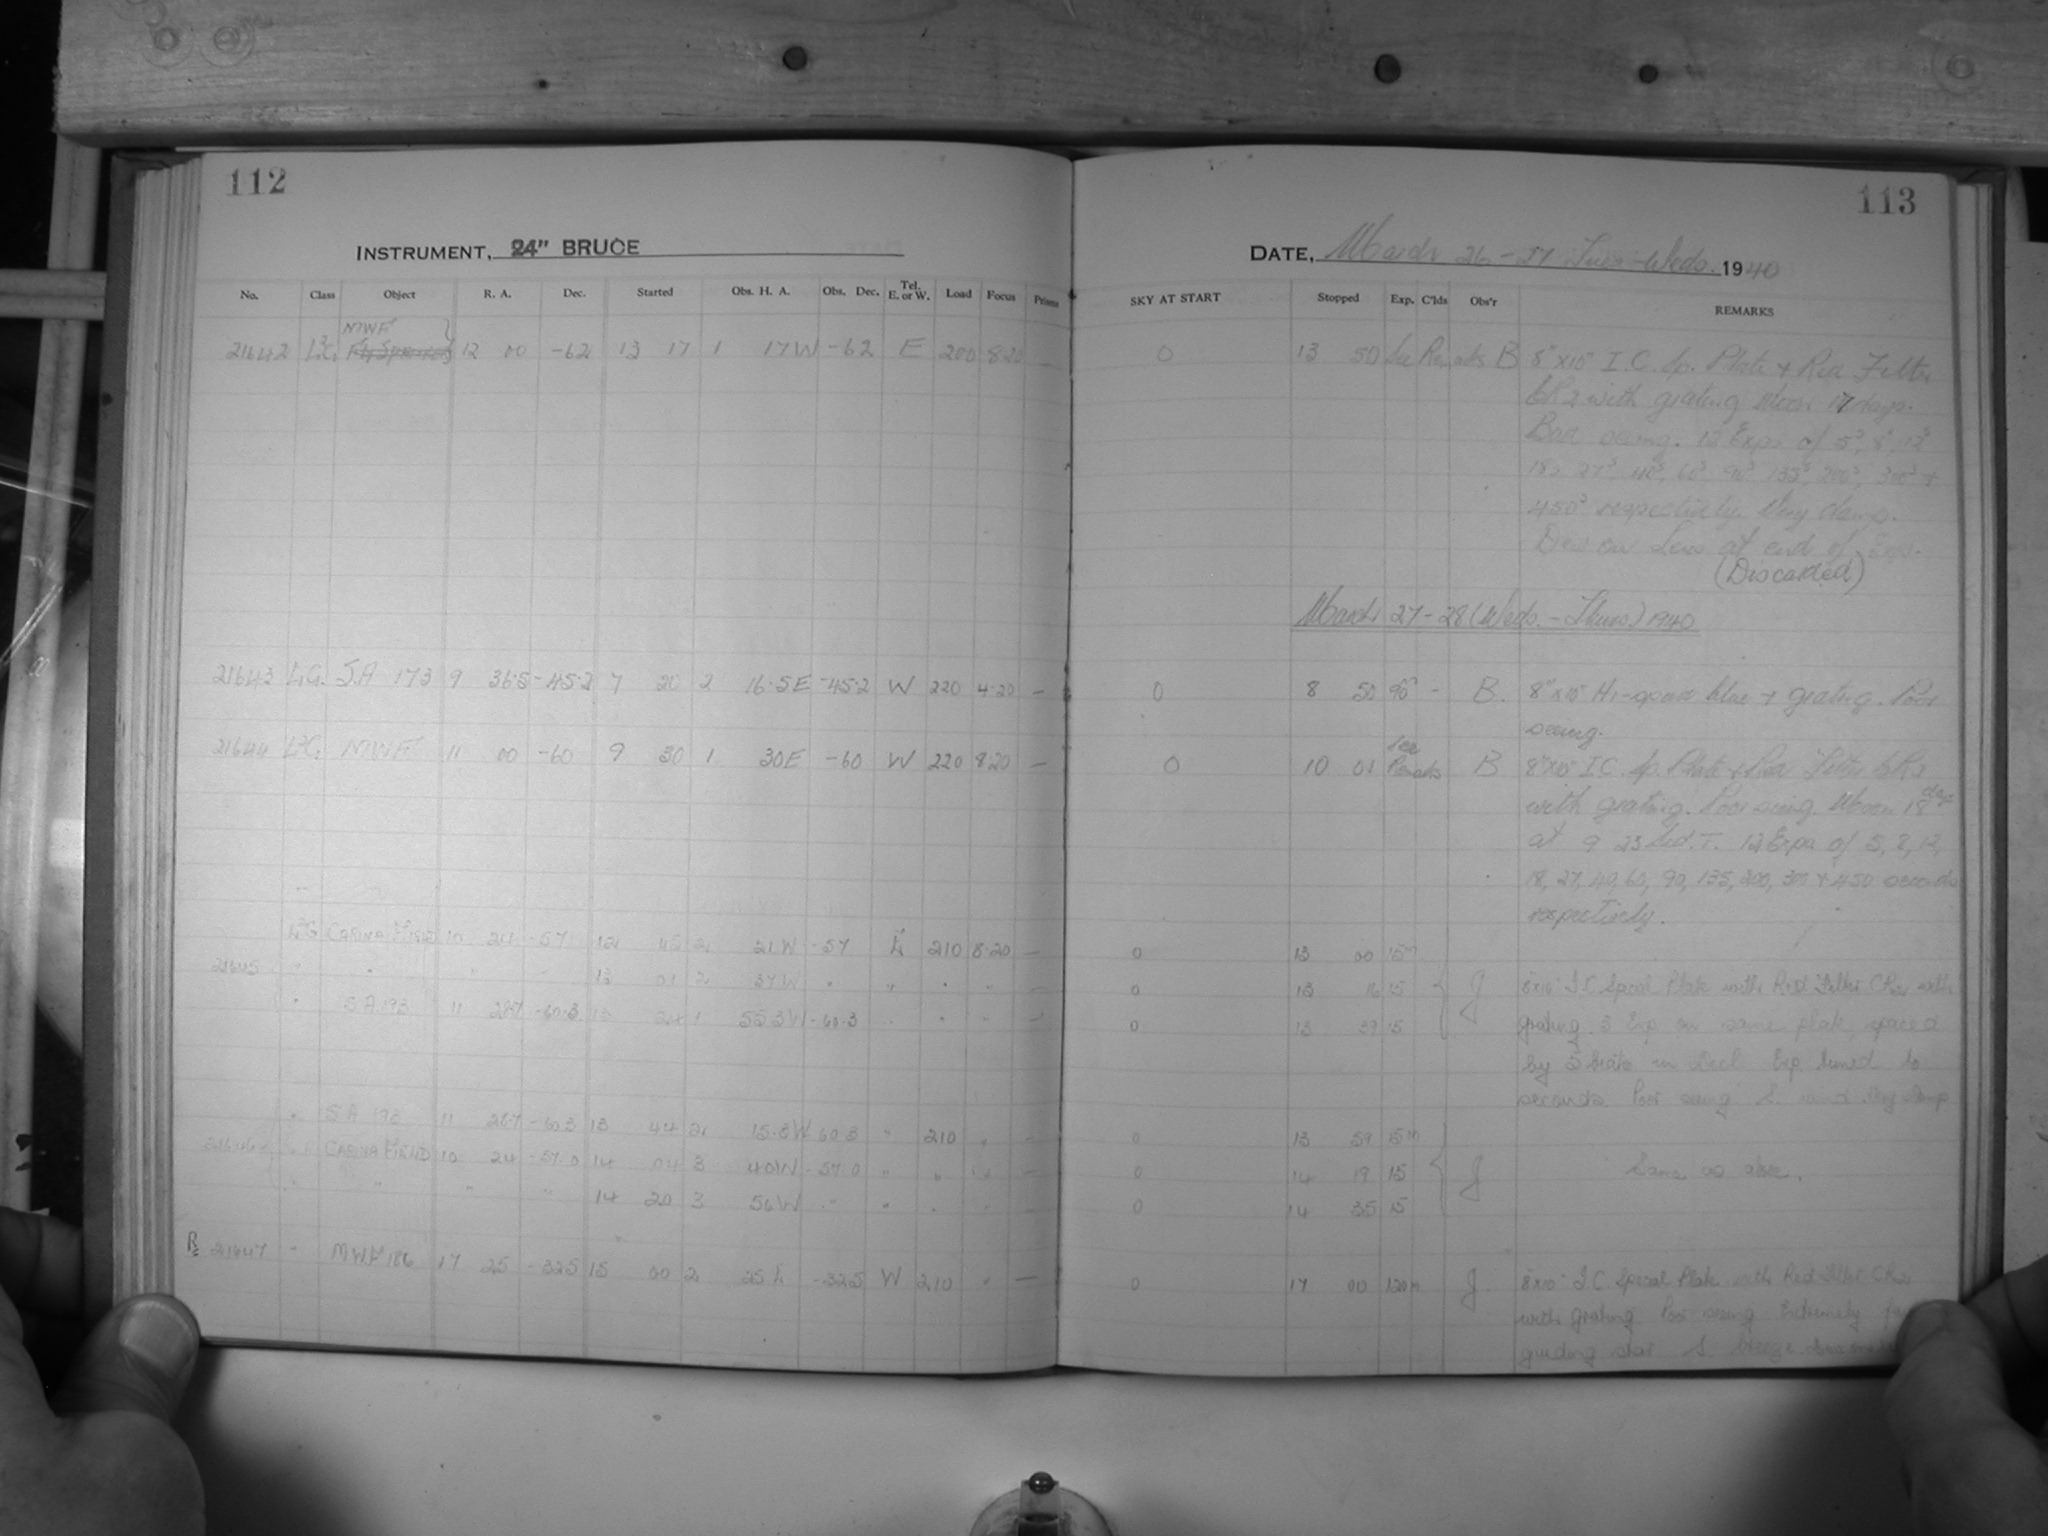 112
INSTRUMENT, 24" BRUCE
No. Class Object R. A. Dec. Started Obs. H. A. Obs. Dec. Tel. E. or W. Load Focus Prisms
MWF
21642 12 00 -62 13 17 1 17W -62 E 200 8.20 —
21643 S.A 173 9 36.5 -45.2 7 20 2 16.5E -45.2 W 220 4.20 —
21644 MWF 11 00 -60 9 30 1 30E -60 W 220 8.20 —
CARINA FIELD 10 24 -57 12 45 2 21W -57 E 210 8.20 —
21645 " " " 13 01 2 37W " " " " —
" S.A. 193 11 28.7 -60.3 13 24 1 55.3W -60.3 " " " —
" S.A 193 11 28.7 -60.3 13 44 2 15.3W 60.3 " 210 " —
21646 " CARINA FIELD 10 24 -57.0 14 04 3 40W -57.0 " " " —
" " " " 14 20 3 56W " " " " —
21647 " MWF 186 17 25 -32.5 15 00 2 25E -32.5 W 210 " —
113
DATE, March 26-27 Tues-Weds. 1940
SKY AT START Stopped Exp. C'lds Obs'r REMARKS
0 13 50 See Remarks B 8"x10" I.C. Sp. Plate + Red Filter
CR2 with grating Moon 17 days.
Bad seeing. 12 Exps of 5s, 8s, 12s
18s, 27s, 40s, 60s, 90s, 135s, 200s, 300s +
450s respectively. Very damp.
Dew on Lens at end of Exps.
(Discarded)
March 27-28 (Weds. - Thurs.) 1940
0 8 50 90m - B. 8"x10" Hi-speed blue + grating. Poor
seeing.
0 10 01 See Remarks B 8"x10" I.C. Sp. Plate + Red Filter CR2
with grating. Poor seeing. Moon 18 days
at 9 23 Sid. T. 12 Exps of 5, 8, 12,
18, 27, 40, 60, 90, 135, 200, 300 + 450 seconds
respectively.
0 13 00 15m
0 13 16 15 J 8"x10" I.C. Special Plate with Red Filter CR2 with
0 13 39 15 grating. 3 Exp on same plate, spaced
by 5 in Decl. Exp timed to
seconds. Poor seeing S. wind Very damp
0 13 59 15m
0 14 19 15 J Same as above.
0 14 35 15
0 17 00 120m J. 8"x10" I.C. Special Plate with Red Filter CR2
with grating. Poor seeing Extremely
guiding star. S. breeze.